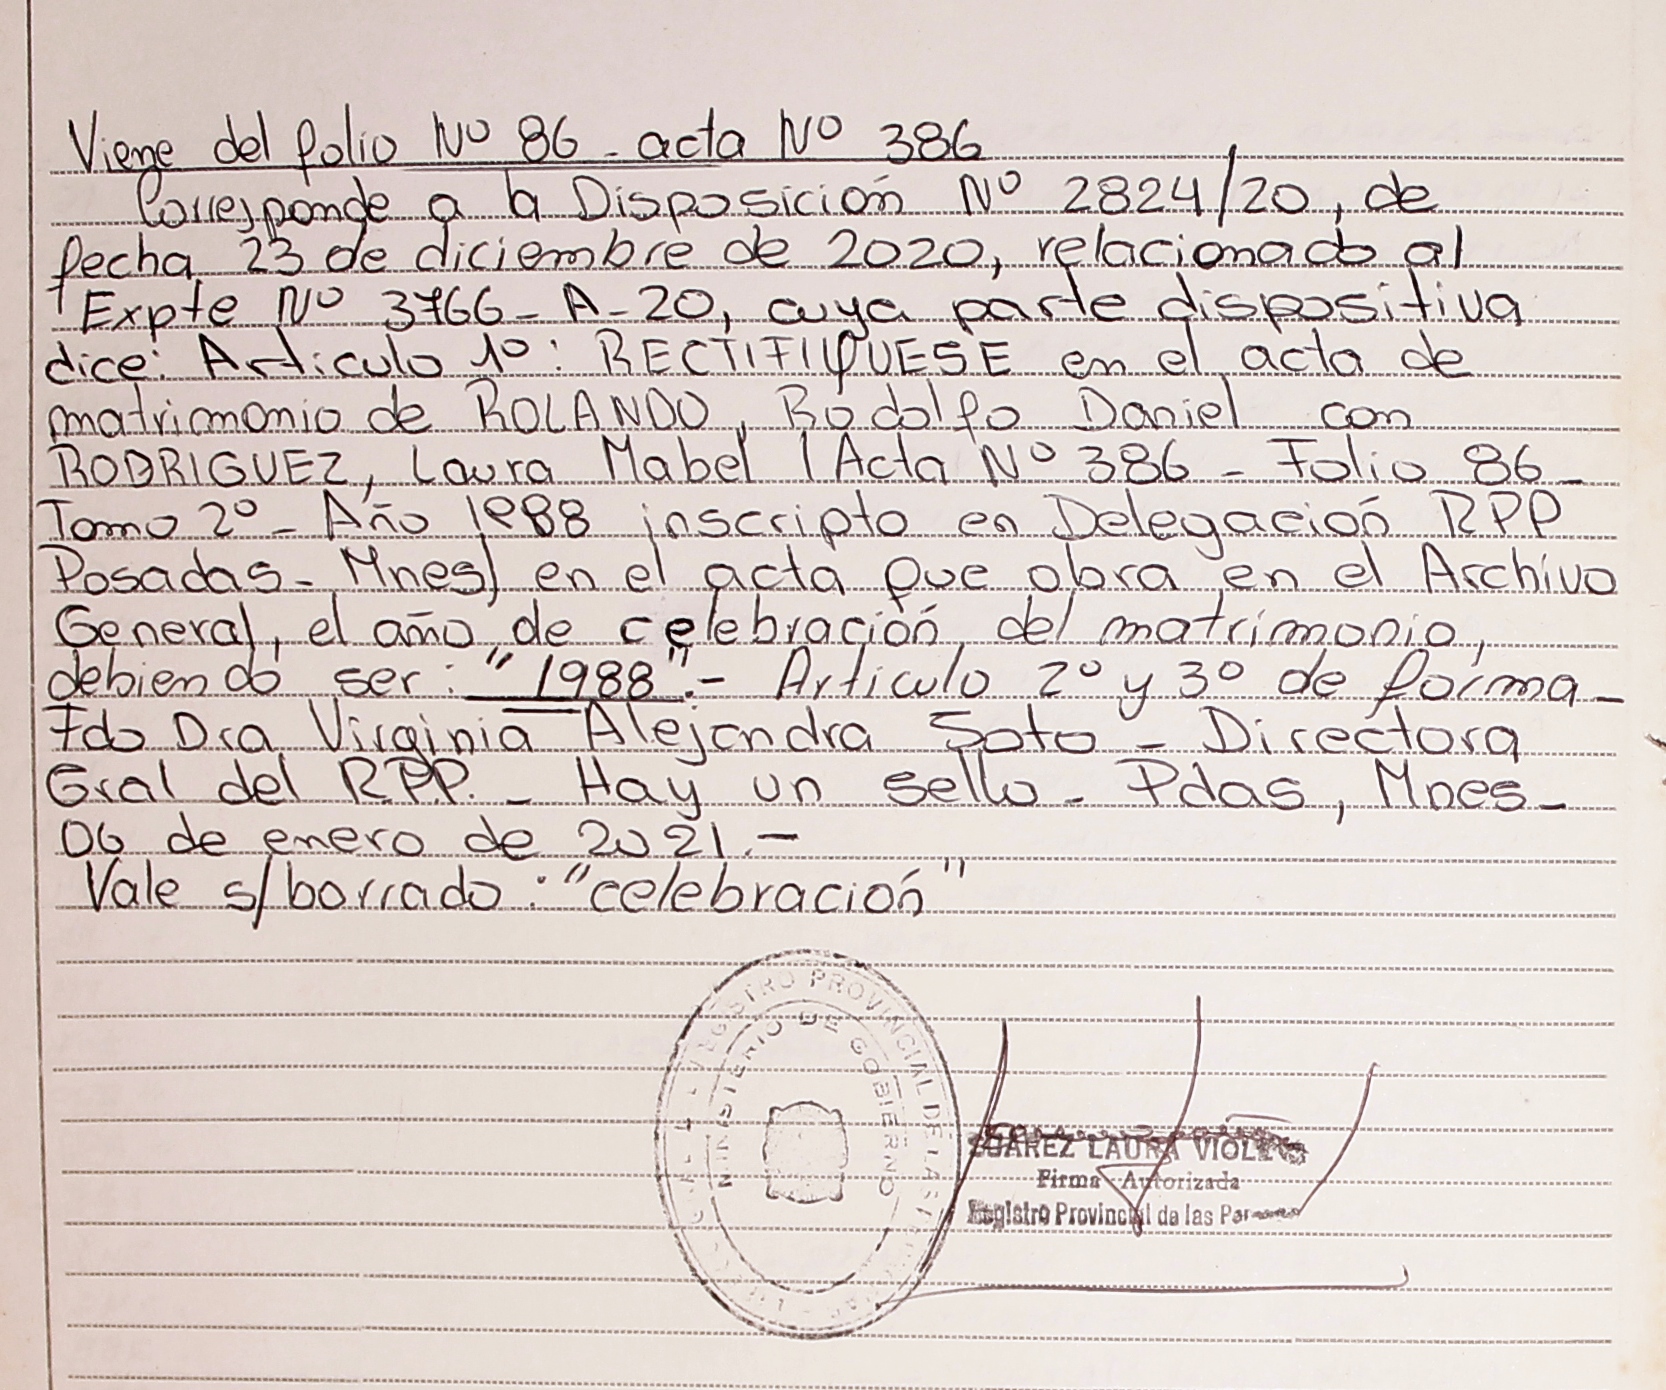 Viene del folio Nº 86 - acta Nº 386
Corresponde a la Disposición Nº 2824/20, de
fecha 23 de diciembre de 2020, relacionado al
Expte Nº 3766 - A - 20, cuya parte dispositiva
dice: Artículo 1º: RECTIFIQUESE en el acta de
matrimonio de ROLANDO, Rodolfo Daniel con
RODRIGUEZ, Laura Mabel (Acta Nº 386 - Folio 86 -
Tomo 2º - Año 1988 inscripto en Delegación RPP
Posadas - Mnes) en el acta que obra en el Archivo
General, el año de celebración del matrimonio,
debiendo ser: "1988".- Artículo 2º y 3º de forma -
Fdo Dra Virginia Alejandra Soto - Directora
Gral del R.P.P. - Hay un sello - Pdas, Mnes -
06 de enero de 2021.-
Vale s/borrado: "celebración"
REGISTRO PROVINCIAL DE LAS
MINISTERIO DE GOBIERNO
SUAREZ LAURA
Firma Autorizada
Registro Provincial de las